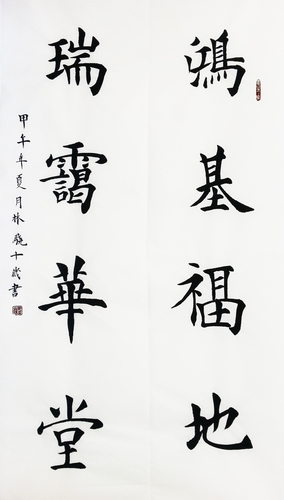 鴻基福地
瑞靄華堂
甲午年夏月林曉十歲書